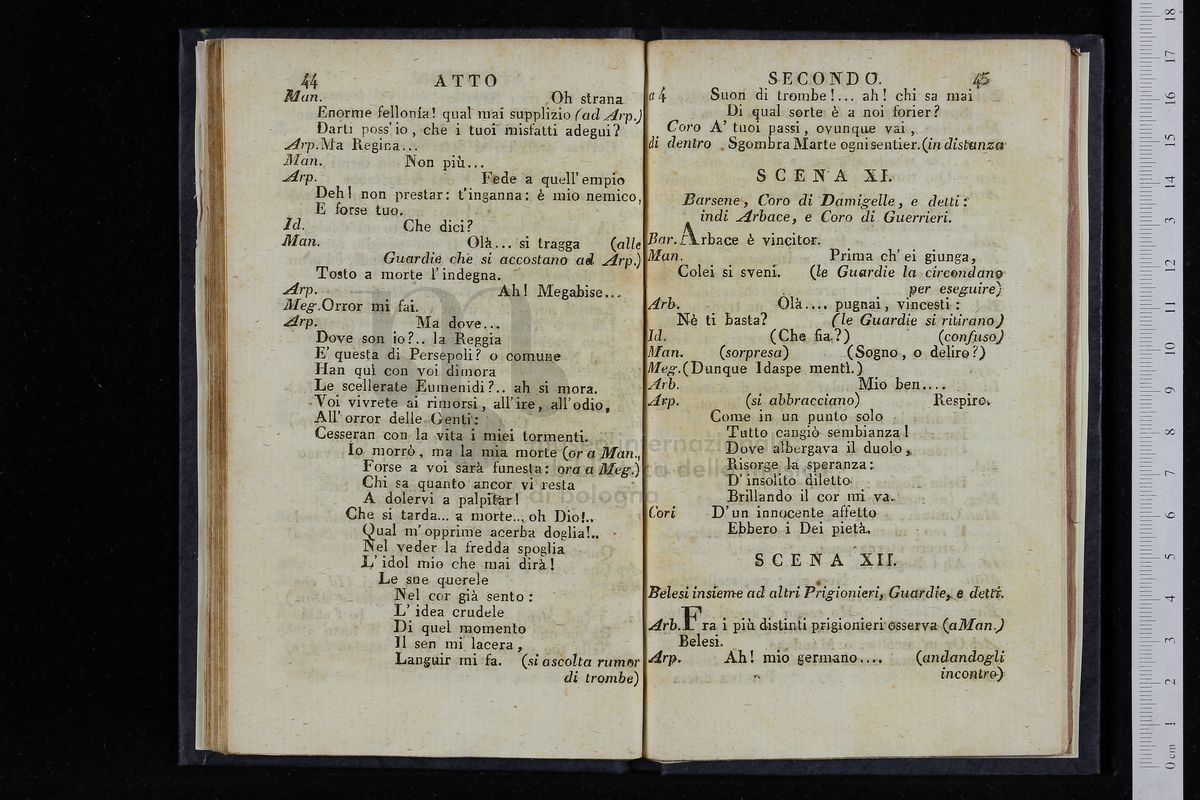 44 ATTO
Man. Oh strana
Enorme fellonía! qual mai supplizio (ad Arp.)
Darti poss'io, che i tuoi misfatti adegui?
Arp. Ma Regina...
Man. Non più...
Arp. Fede a quell'empio
Deh! non prestar: t'inganna: è mio nemico,
E forse tuo.
Id. Che dici?
Man. Olà... si tragga (alle
Guardie che si accostano ad Arp.)
Tosto a morte l'indegna.
Arp. Ah! Megabise...
Meg. Orror mi fai.
Arp. Ma dove...
Dove son io?.. la Reggia
E' questa di Persepoli? o comune
Han quì con voi dimora
Le scellerate Eumenidi?.. ah si mora.
Voi vivrete ai rimorsi, all'ire, all'odio,
All'orror delle Genti:
Cesseran con la vita i miei tormenti.
Io morrò, ma la mia morte (or a Man.,
Forse a voi sarà funesta: ora a Meg.)
Chi sa quanto ancor vi resta
A dolervi a palpitar!
Che si tarda... a morte... oh Dio!..
Qual m'opprime acerba doglia!..
Nel veder la fredda spoglia
L'idol mio che mai dirà!
Le sue querele
Nel cor già sento:
L'idea crudele
Di quel momento
Il sen mi lacera,
Languir mi fa. (si ascolta rumor
di trombe)
SECONDO. 45
a 4 Suon di trombe!... ah! chi sa mai
Di qual sorte è a noi forier?
Coro A' tuoi passi, ovunque vai,
di dentro Sgombra Marte ogni sentier. (in distanza
SCENA XI.
Barsene, Coro di Damigelle, e detti:
indi Arbace, e Coro di Guerrieri.
Bar. Arbace è vincitor.
Man. Prima ch'ei giunga,
Colei si sveni. (le Guardie la circondano
per eseguire)
Arb. Olà.... pugnai, vincesti:
Nè ti basta? (le Guardie si ritirano)
Id. (Che fia?) (confuso)
Man. (sorpresa) (Sogno, o deliro?)
Meg. (Dunque Idaspe mentì.)
Arb. Mio ben....
Arp. (si abbracciano) Respiro.
Come in un punto solo
Tutto cangiò sembianza!
Dove albergava il duolo,
Risorge la speranza:
D'insolito diletto
Brillando il cor mi va.
Cori D'un innocente affetto
Ebbero i Dei pietà.
SCENA XII.
Belesi insieme ad altri Prigionieri, Guardie, e detti.
Arb. Fra i più distinti prigionieri osserva (a Man.)
Belesi.
Arp. Ah! mio germano.... (andandogli
incontro)